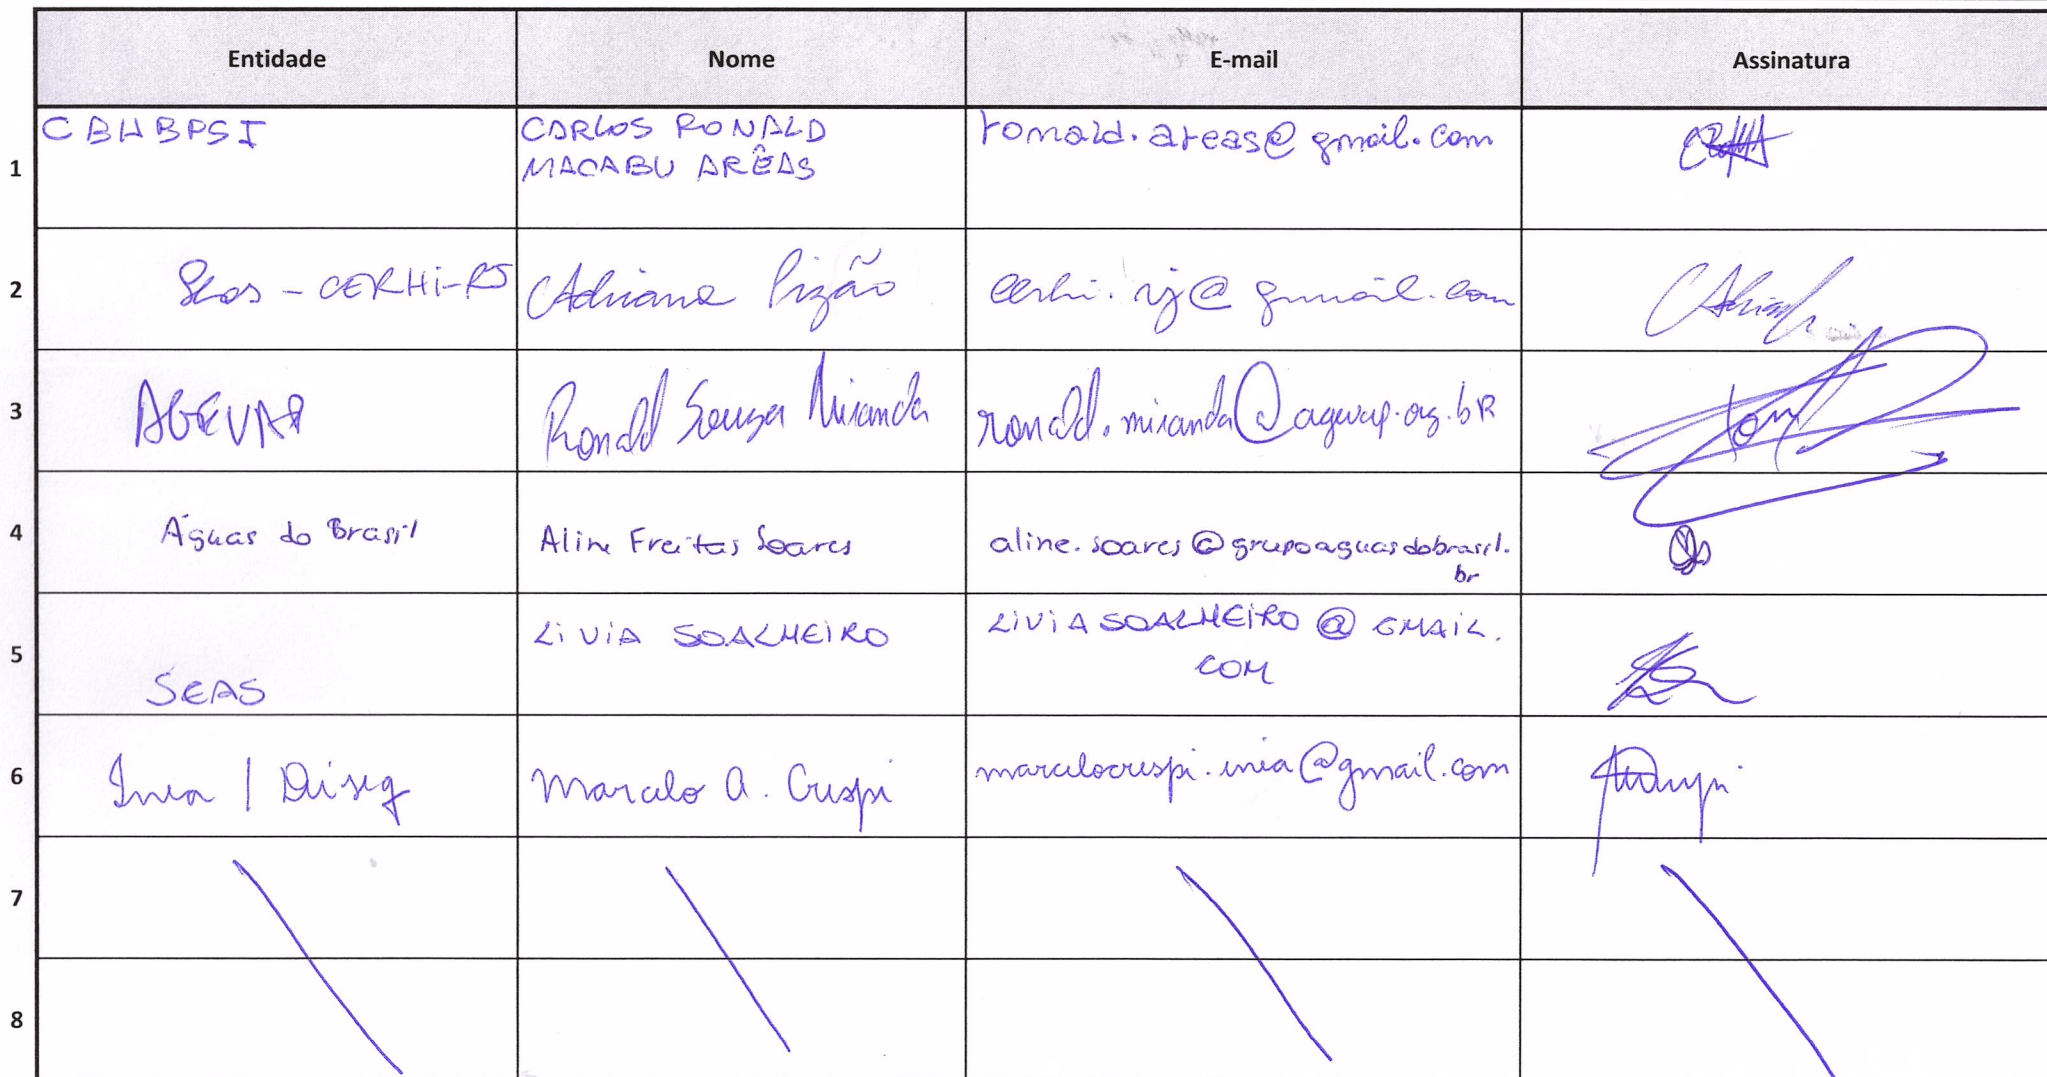 Entidade Nome E-mail Assinatura
1 CBHBPSI CARLOS RONALD MACABU ARÊAS ronald.areas@gmail.com
2 Seas - CERHI-RJ Adriana Pizão cerhi.rj@gmail.com
3 AGEVAP Ronald Souza Miranda ronald.miranda@agevap.org.bR
4 Águas do Brasil Aline Freitas Soares aline.soares@grupoaguasdobrasil.br
5 SEAS LIVIA SOALHEIRO LIVIASOALHEIRO@GMAIL.COM
6 Inea | Diseq Marcelo A. Crispi marcelocrispi.inea@gmail.com
7
8